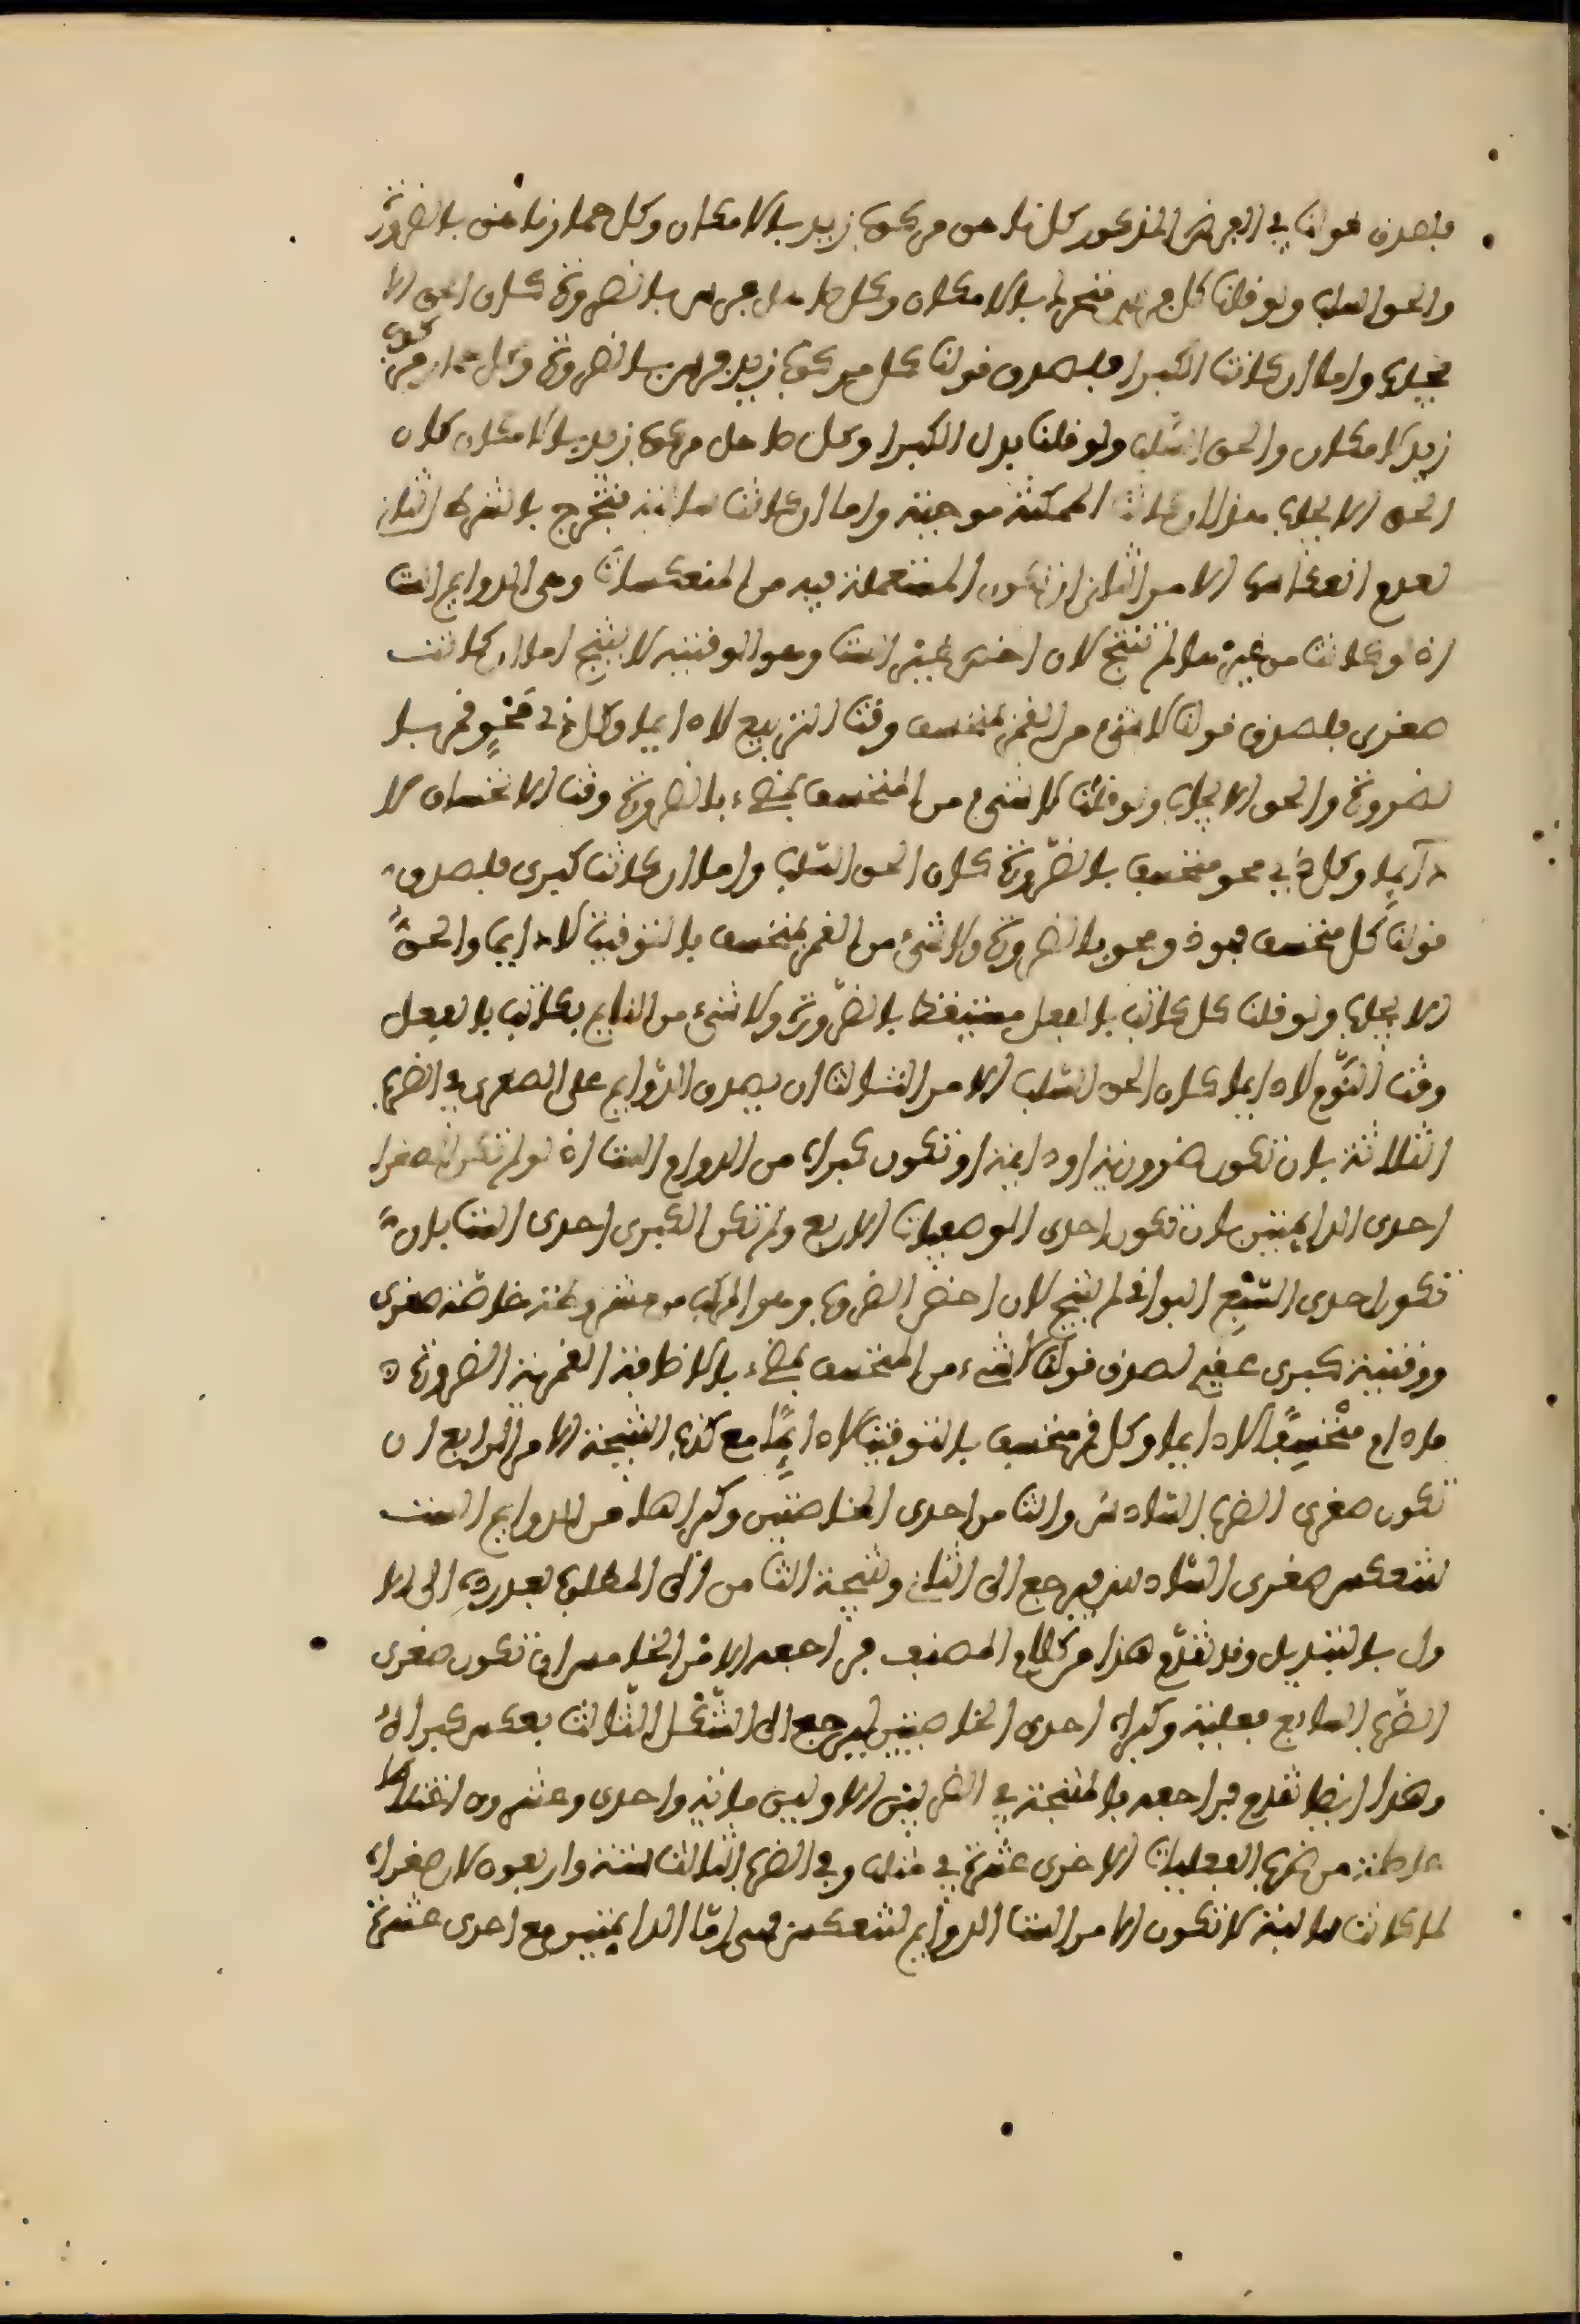 فلصدق قولنا في الفرض المذكور كل ناهق مركوب زيد بالامكان وكل حمار ناهق بالضرورة
والحق السلب ولو قلنا كل فرس بالامكان وكل صاهل فرس بالضرورة كان الحق الا
يجاب واما ان كانت الكبرا فلصدق قولنا كل مركوب زيد فرس بالضرورة وكل حمار مركوب
زيد لامكان والحق السلب ولو قلنا بدل الكبرا وكل صاهل مركوب زيد بالامكان كان
الحق الايجاب هذا ان كانت الممكنة موجبة واما ان كانت سالبة فتخرج بالشرط الثاني
لعدم انعكاسها الامر الثاني ان تكون المستعملة فيه من المنعكسات وهي الدوايم الست
اذ لو كانت من غيرها لم تنتج لان اخص غير الست وهو الوقتية لا ينتج اما ان كانت
صغرى فلصدق قولنا لا شيء من القمر بمنخسف وقت التربيع لا دايما وكل ذي محو قمر با
لضرورة والحق الايجاب ولو قلنا لا شيء من المنخسف بمضيء بالضرورة وقت الانخساف لا
دآيما وكل ذي محو منخسف بالضرورة كان الحق السلب واما ان كانت كبرى فلصدق
قولنا كل منخسف فهو ذو محو بالضرورة ولا شيء من القمر بمنخسف بالتوقيت لا دايما والحق
الايجاب ولو قلنا كل كاتب بالفعل مستيقظ بالضرورة ولا شيء من النايم بكاتب بالفعل
وقت النوم لا دايما كان الحق السلب الامر الثالث ان يصدق الدوام على الصغرى في الضرب
الثالث بان تكون ضرورية او دايمة او تكون كبراه من الدوايم الست اذ لو لم تكن الصغرا
احدى الدايمتين بان تكون احدى الوصفيات الاربع ولم تكن الكبرى احدى الست بان
تكون احدى السبع البواقي لم ينتج لان اخص الضروب وهو المركب من مشروطة خاصة صغرى
ووقتية كبرى عقيم لصدق قولنا لا شيء من المنخسف بمضيء بالاضافة القمرية الضرورة
ما دام منخسفا لا دايما وكل قمر منخسف بالتوقيت لا دايما مع كذب النتيجة الامر الرابع ان
تكون صغرى الضرب السادس والثامن احدى الخاصتين وكبراهما من الدوايم الست
لتنعكس صغرى السادس فيرجع الى الثاني ونتيجة الثامن الى المطلوب بعد رده الى الا
ول بالتبديل وقد تقدم هذا من كلام المصنف فراجعه الامر الخامس ان تكون صغرى
الضرب السابع فعلية وكبراه احدى الخاصتين ليرجع الى الشكل الثالث بعكس كبراه
وهذا ايضا تقدم فراجعه فالمنتجة في الضربين الاولين ماية واحدى وعشرون اختلاطا
حاصلة من ضرب الفعليات الاحدى عشرة في مثلها وفي الضرب الثالث ستة واربعون لان صغراه
لما كانت سالبة لا تكون الا من الست الدوايم لتنعكس فهي اما الدايمتين مع احدى عشرة